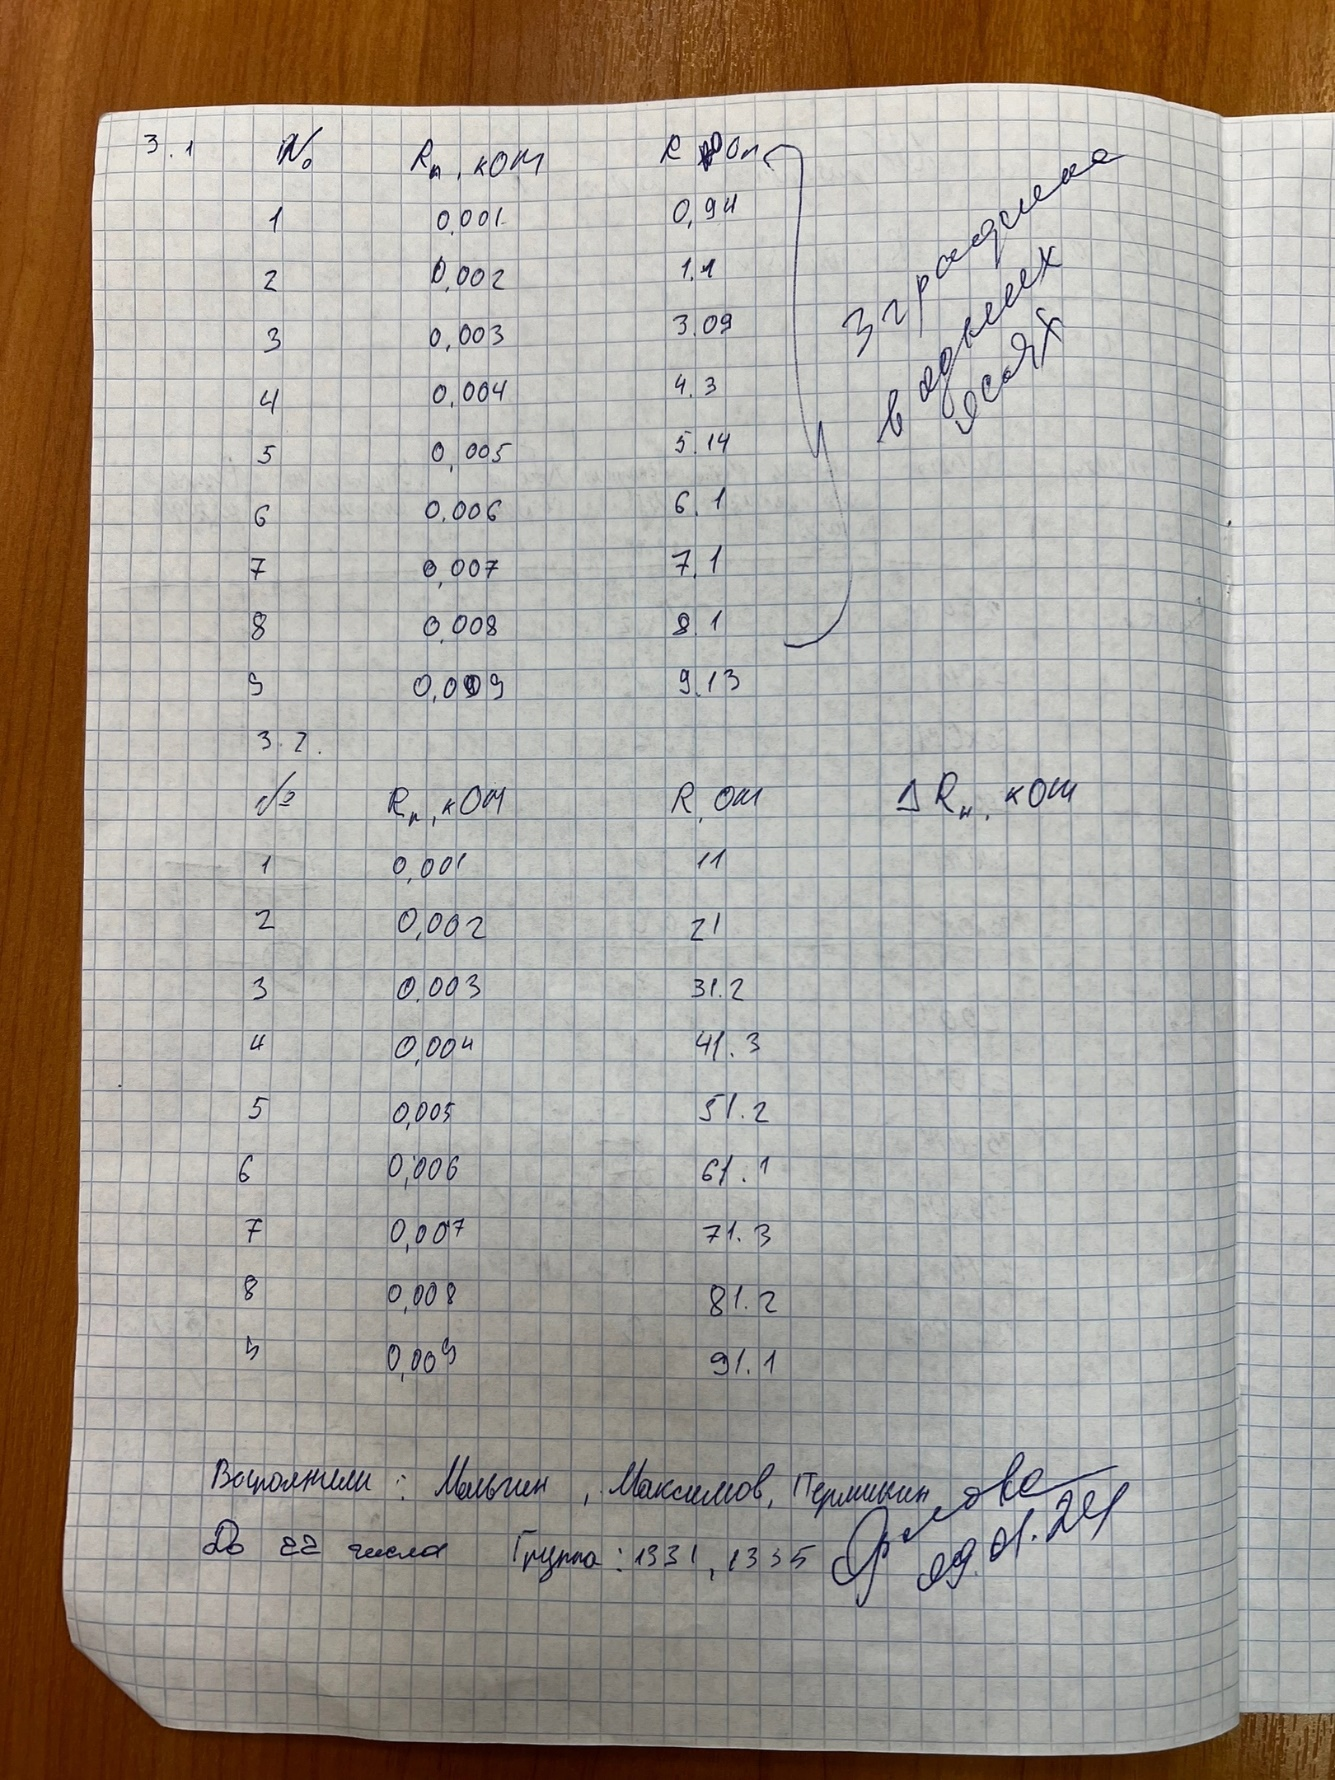 3.1 № Rп, кОм R Ом
1 0,001 0,94
2 0,002 1.1
3 0,003 3.09
4 0,004 4.3
5 0,005 5.14
6 0,006 6.1
7 0,007 7.1
8 0,008 8.1
9 0,009 9.13
3 графика
в одних
осях
3.2.
№ Rп, кОм R, Ом Δ Rн, кОм
1 0,001 11
2 0,002 21
3 0,003 31.2
4 0,004 41.3
5 0,005 51.2
6 0,006 61.1
7 0,007 71.3
8 0,008 81.2
9 0,009 91.1
Выполнили: Малыгин, Максимов, Перминкин
До 22 числа Группа: 1331, 1335
09.01.24